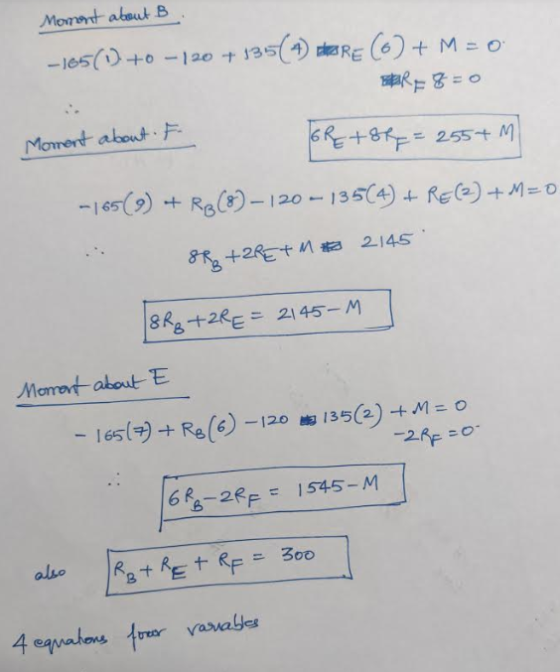 Moment about B.
-165(1) + 0 - 120 + 135(4) RE (6) + M = 0.
RF 8 = 0
∴
Moment about F.
6RE + 8RF = 255 + M
-165(9) + RB(8) - 120 - 135(4) + RE(2) + M = 0
∴ 8RB + 2RE + M 2145
8RB + 2RE = 2145 - M
Moment about E
-165(7) + RB(6) - 120 135(2) + M = 0
-2RF = 0.
∴
6RB - 2RF = 1545 - M
also RB + RE + RF = 300
4 equations four variables